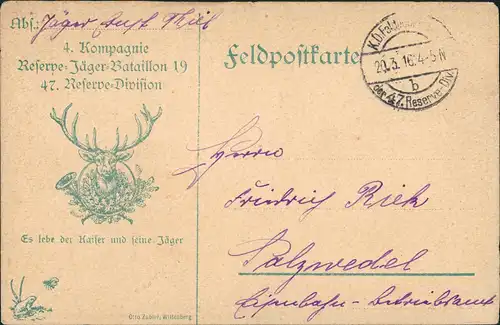 Abs: Jäger
4. Kompagnie
Reserve-Jäger-Bataillon 19
47. Reserve-Division
Feldpostkarte
20.3.16. 4-5N
b
der 47. Reserve-Div.
Herrn
Friedrich Riek
Salzwedel
Eisenbahn-Betriebsamt
Es lebe der Kaiser und seine Jäger
Otto Zabler, Wittenberg